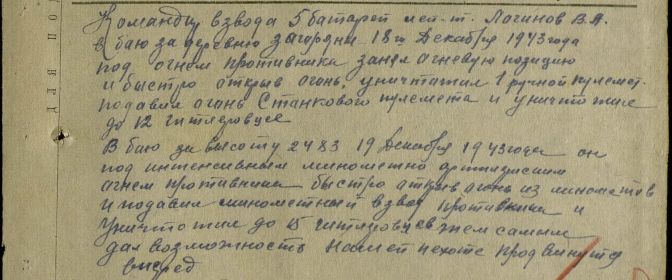 Командир взвода 5 батареи мл-т. Логинов В.А.
в баю за деревню Загоряни 18го Декабря 1943 года
под огнем противника занял агневую позицию
и быстро открыв агонь, уничтажил 1 ручной пулемет,
подавил агонь Станкового пулемета и уничтожил
до 12 гитлеровцев
В баю за высоту 248 3 19 Декабря 1943 года он
под интенсивным минометно артилерийским
агнем противника быстро аткрыв агонь из минометов
и подавил минометный взвод противника и
уничтожил до 15 гитлеровцев тем самым
дал возможность нашей пехоте продвинутся
вперед